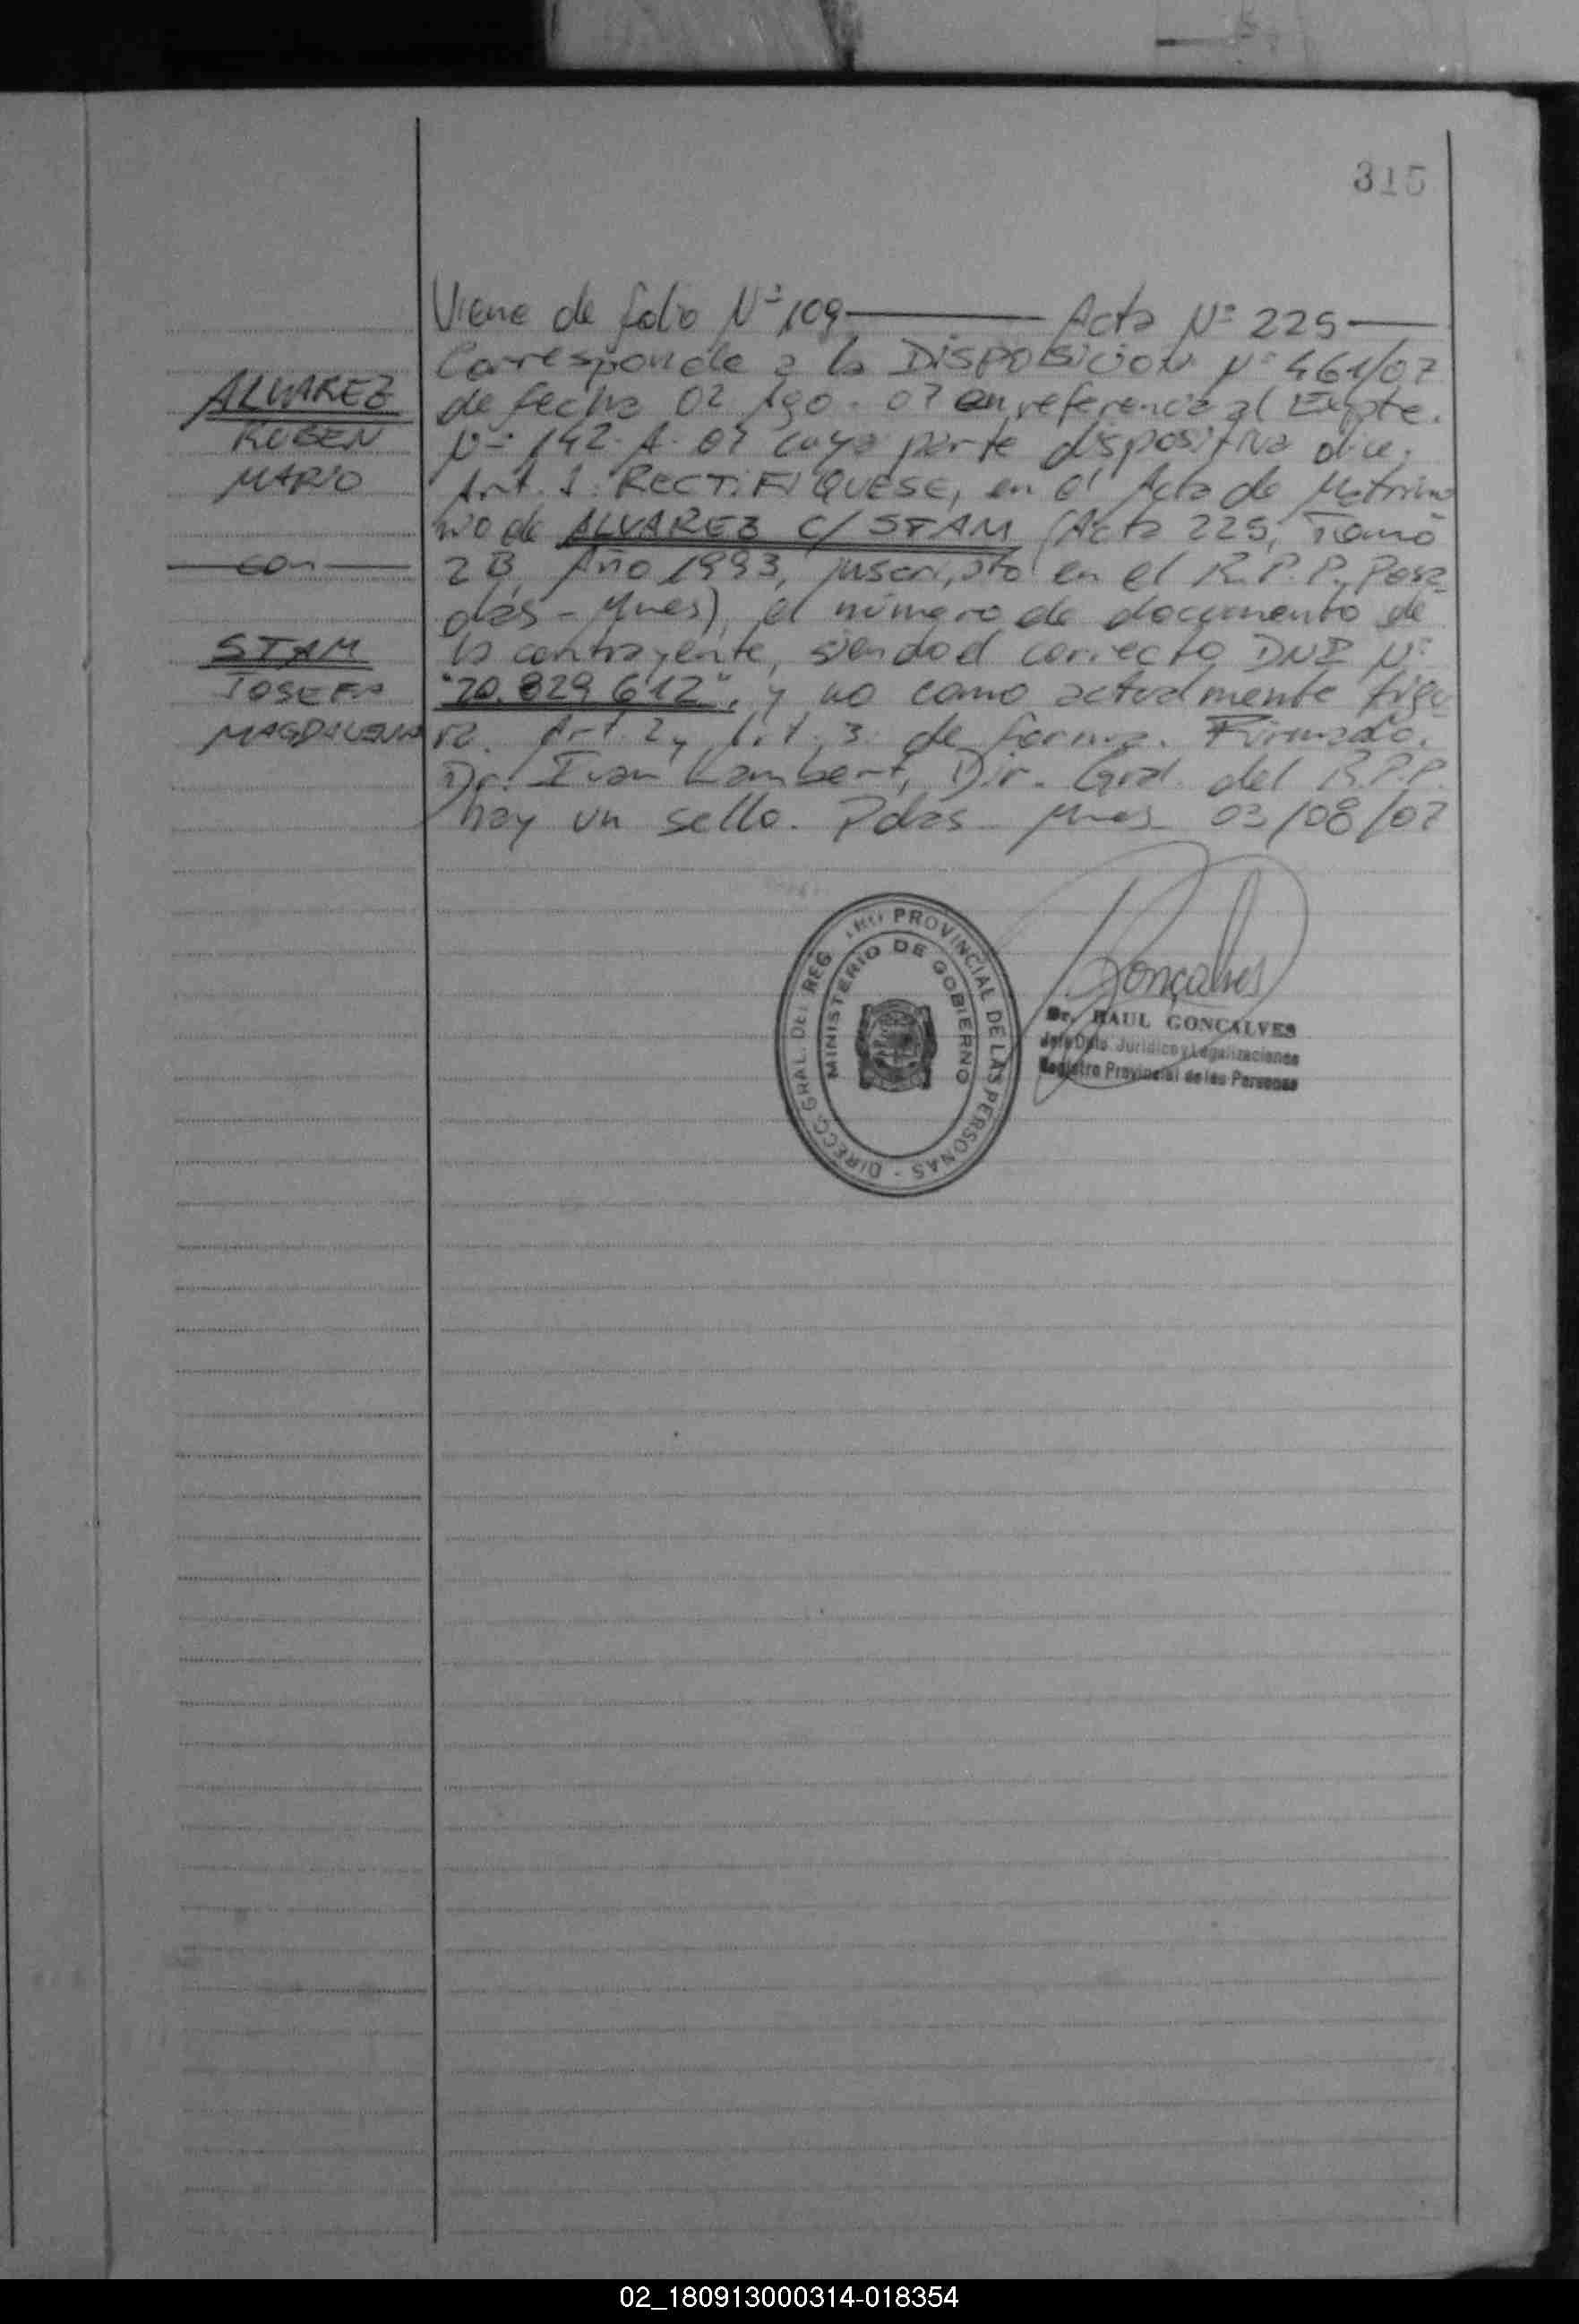 315
Viene de folio Nº 109 ——— Acta Nº 225 —
Corresponde a la DISPOSICION Nº 461/07
de fecha 02 Ago. 07 en referencia al Expte.
Nº 142-A-07 cuya parte dispositiva dice:
Art. 1: RECTIFIQUESE, en el Acta de Matrimo
nio de ALVAREZ C/ STAM (Acta 225, Tomo
2B, Año 1993, inscripto en el R.P.P. Posa
das - Mnes), el número de documento de
la contrayente, siendo el correcto DNI Nº
"20.829.612", y no como actualmente figu
ra. Art. 2 y Art. 3: de forma. Firmado.
Dr. Ivan Lambert, Dir. Gral. del R.P.P.
hay un sello. Pdas - Mnes - 03/08/07
ALVAREZ
RUBEN
MARIO
— con —
STAM
JOSEFA
MAGDALENA
DIRECC. GRAL. DEL REG PROVINCIAL DE LAS PERSONAS -
MINISTERIO DE GOBIERNO
Gonçalves
Dr. RAUL GONCALVES
Jefe Dpto. Jurídico y Legalizaciones
Registro Provincial de las Personas
02_180913000314-018354